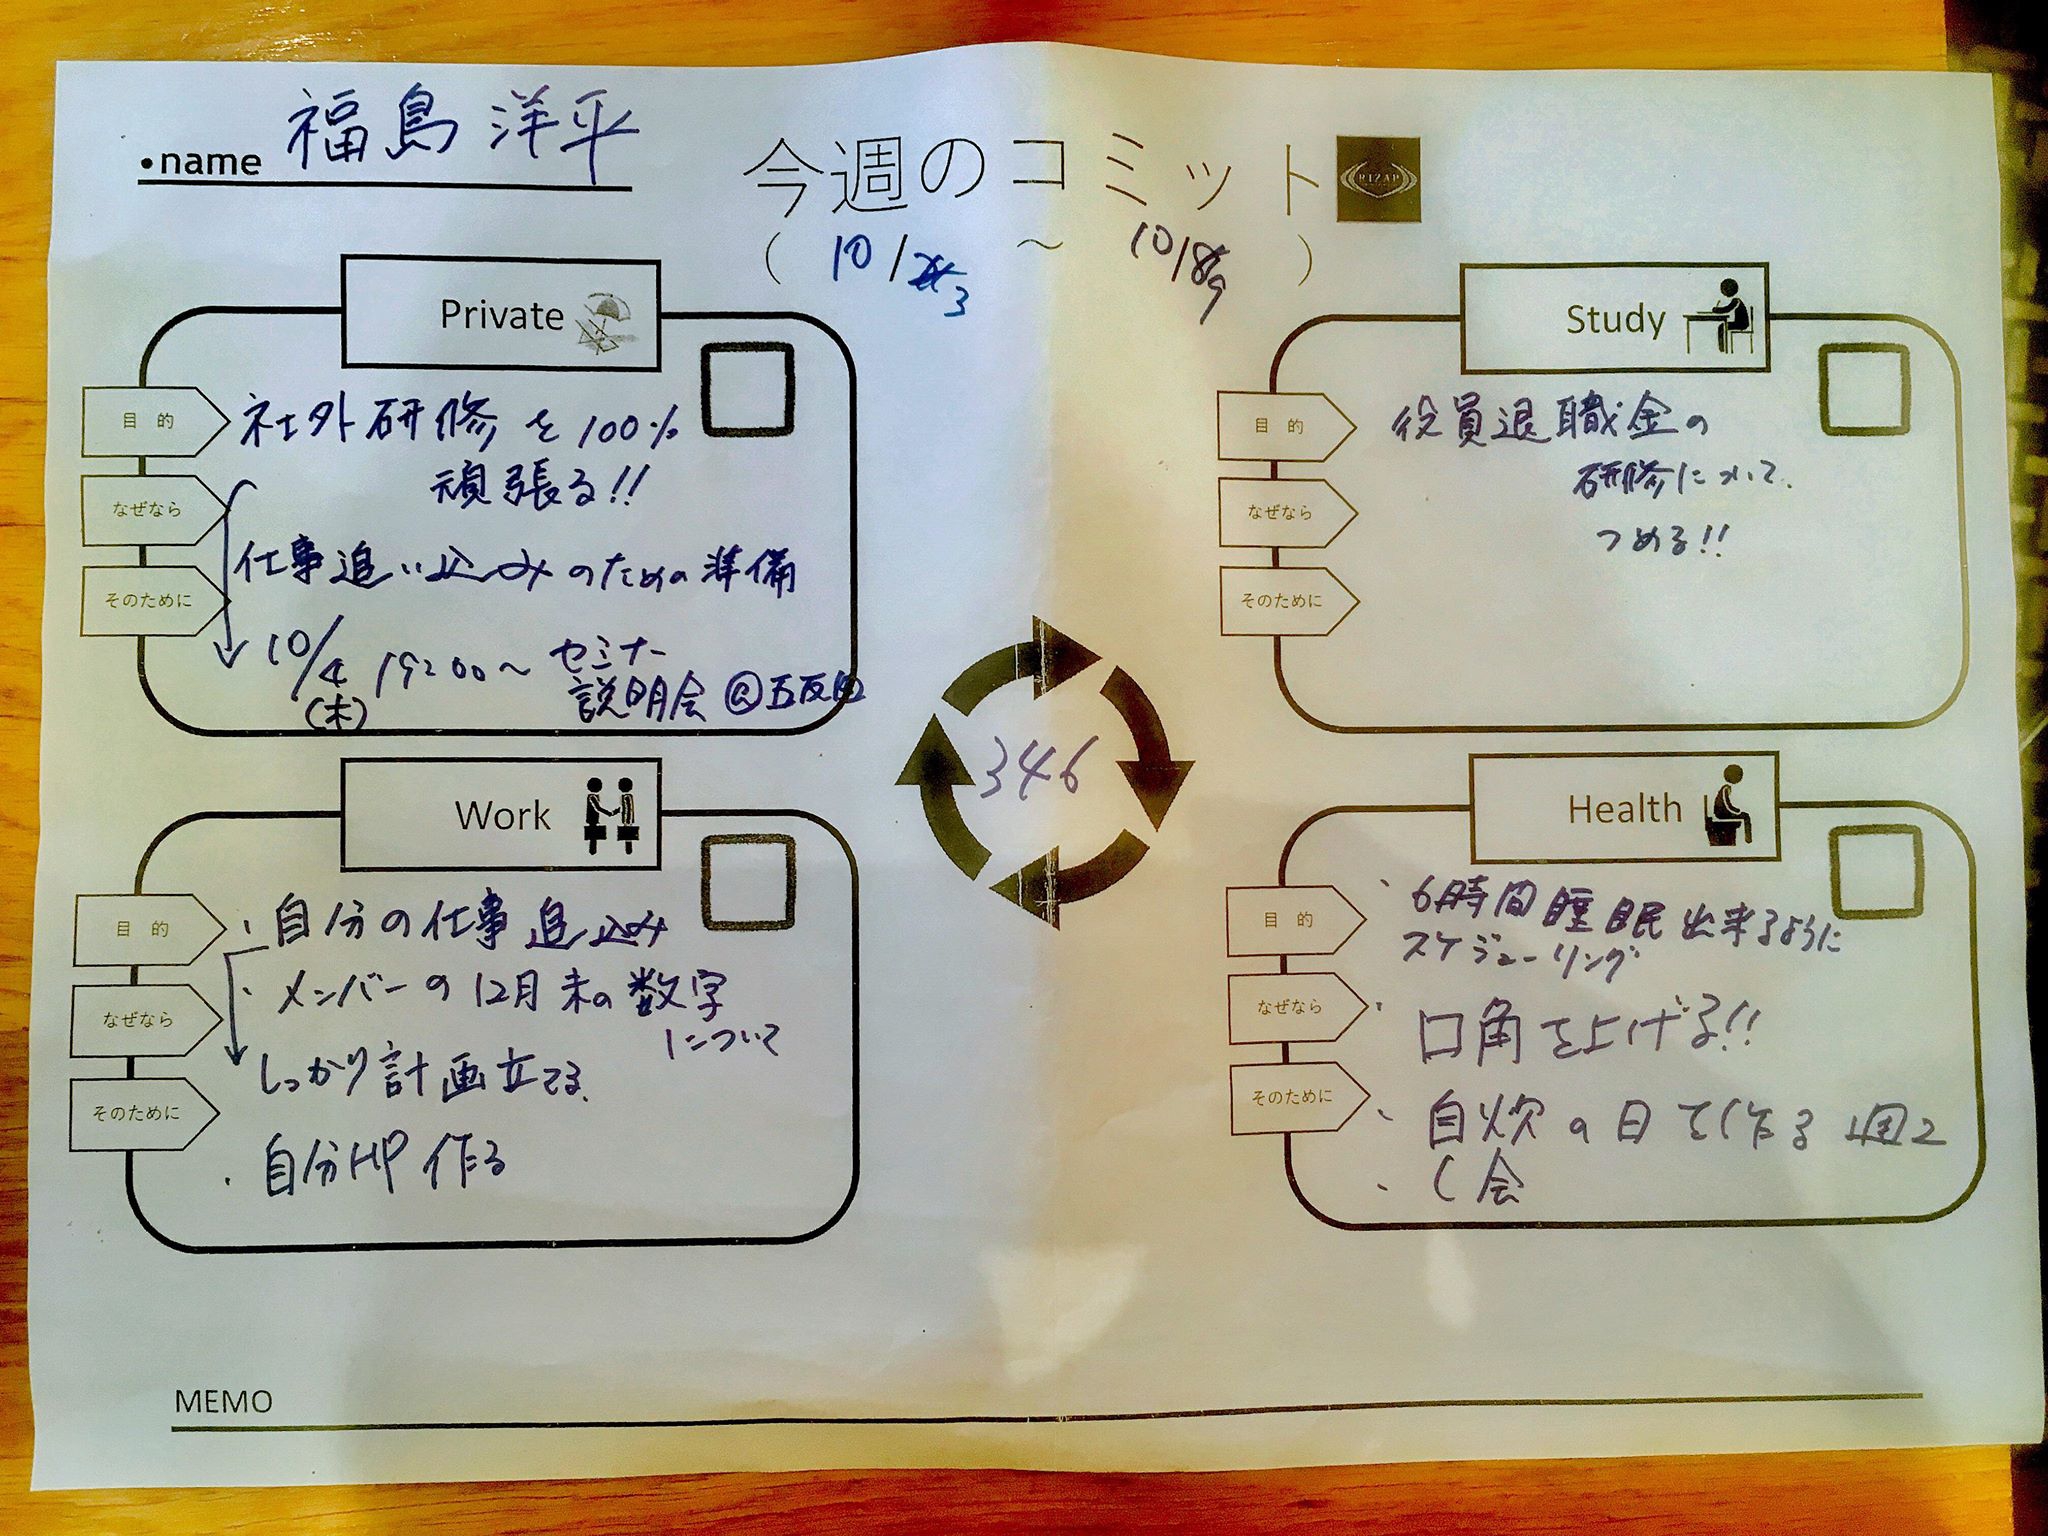 •name 福島 洋平
今週のコミット
RIZAP
( 10/3 ～ 10/9 )
Private
目 的
なぜなら
そのために
社外研修を100%
頑張る!!
仕事追い込みのための準備
10/4 19:00〜 セミナー
(木) 説明会 @五反田
Study
目 的
なぜなら
そのために
役員退職金の
研修について.
つめる!!
346
Work
目 的
なぜなら
そのために
・自分の仕事追込み
・メンバーの12月末の数字
について
しっかり計画立てる.
・自分HP作る
Health
目 的
なぜなら
そのために
・6時間睡眠出来るように
スケジューリング
・口角を上げる!!
・自炊の日を作る 週2
・く会
MEMO